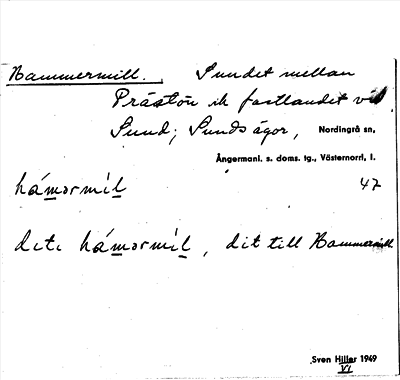 Hammermill. Sundet mellan
Prästön ch fastlandet vid
Sund; Sunds ägor, Nordingrå sn,
Ångermanl. s. doms. tg., Västernorrl, l.
hámərmíl 47
deti hámərmíl, dit till Hammermill
Sven Hiller 1949
VI